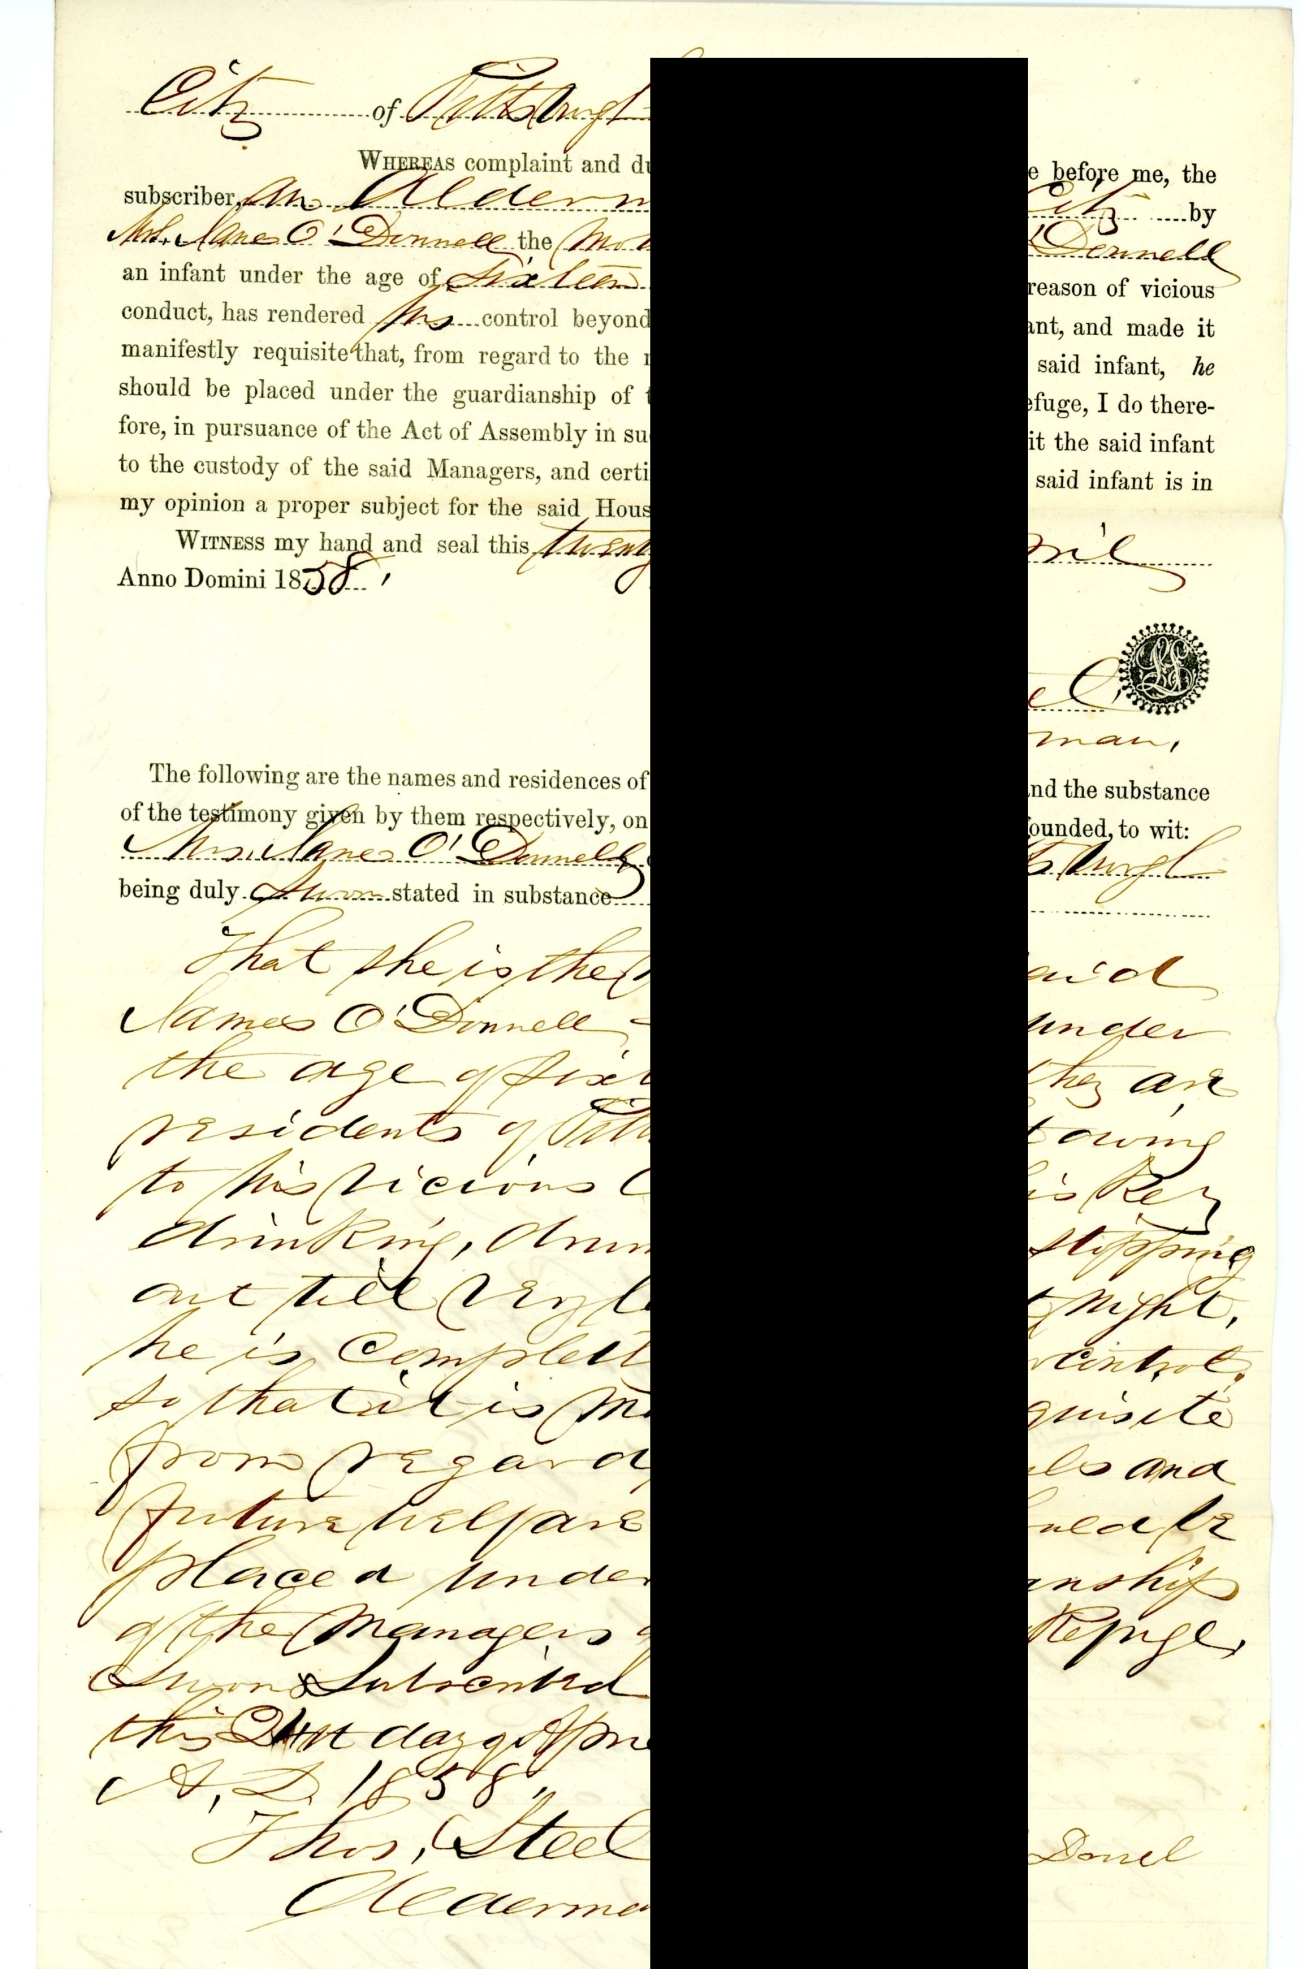 City of Pittsburgh
WHEREAS complaint and du e before me, the
subscriber, an Alderm City by
Mrs. Jane O'Donnell the Mo O'Donnell
an infant under the age of Sixteen reason of vicious
conduct, has rendered his control beyond ant, and made it
manifestly requisite that, from regard to the said infant, he
should be placed under the guardianship of t efuge, I do there-
fore, in pursuance of the Act of Assembly in su it the said infant
to the custody of the said Managers, and certi said infant is in
my opinion a proper subject for the said Hous
WITNESS my hand and seal this twenty ril
Anno Domini 1858.
el LS
man,
The following are the names and residences of and the substance
of the testimony given by them respectively, on founded, to wit:
Mrs. Jane O'Donnell, sburgh
being duly Sworn stated in substance
That she is the said
James O'Donnell under
the age of sixt they are
residents of Pitt owing
to his vicious C is Key
drinking, drun stopping
out till very l t night,
he is complet control,
so that it is ma quisite
from regard als and
future welfare uld be
placed under anship
of the Managers o Refuge,
Sworn & Subscribed
this 24th day of Apri
A.D. 1858.
Thos. Steel Donel
Alderma